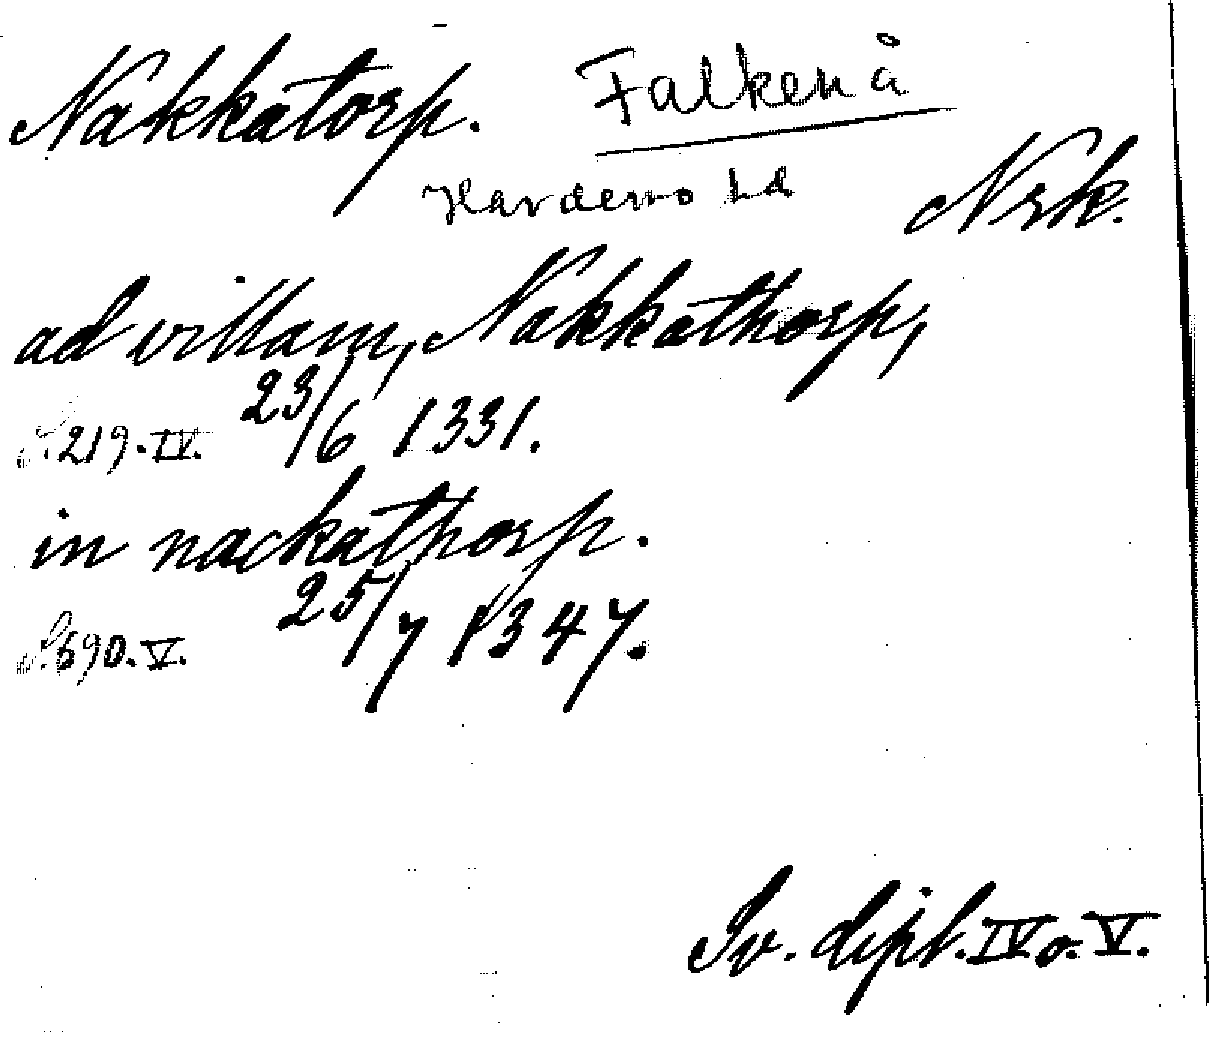 Nakkatorp. Falkenå
Hardemo hd Nrk.
ad villam, Nakkathorp,
S. 219. IV. 23/6 1331.
in nackathorp.
S. 690. V. 25/7 1347.
Sv. dipl. IV o. V.